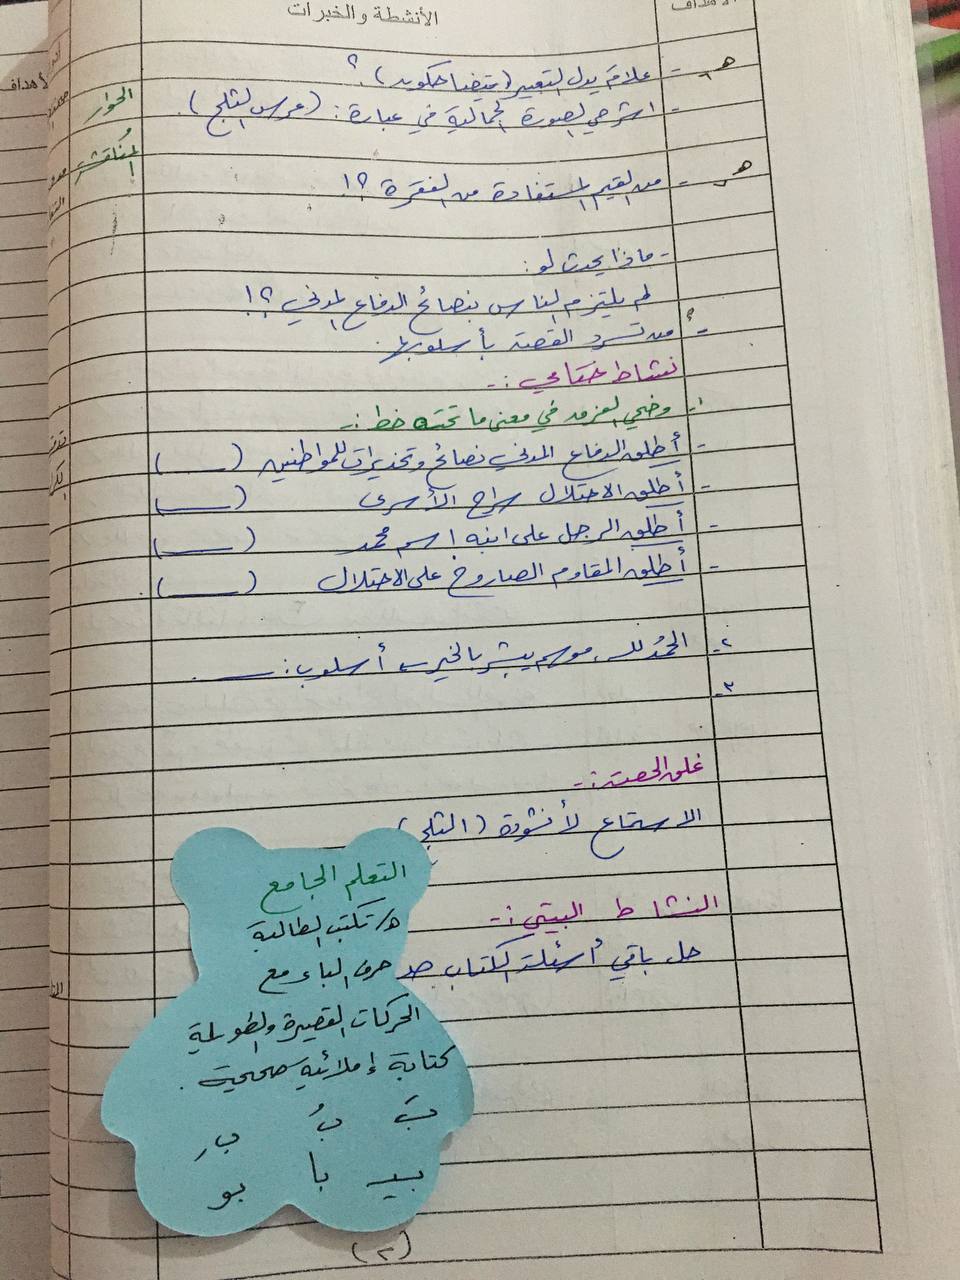 الأهداف
الأنشطة والخبرات
هـ - علامَ يدل التعبير ( ) ؟
- اشرحي الصورة الجمالية في عبارة: (عرس الثلج).
الحوار
المناقشة
هـ - من القيم المستفادة من الفقرة ؟!
- ماذا يحدث لو:
لم يلتزم الناس بنصائح الدفاع المدني ؟!
- من تسرد القصة بأسلوبها ؟
نشاط ختامي :-
١- وضحي الفرق في معنى ما تحته خط :-
- أطلق الدفاع المدني نصائح وتحذيرات للمواطنين ( )
- أطلق الاحتلال سراح الأسرى ( )
- أطلق الرجل على ابنه اسم محمد ( )
- أطلق المقاوم الصاروخ على الاحتلال ( )
٢- الحمد لله، موسم يبشر بالخير، أسلوب:
٣-
غلق الحصة :-
الاستماع لأنشودة (الثلج)
النشاط البيتي :-
حل باقي أسئلة الكتاب صـ
التعلم الجامع
هـ/ تكتب الطالبة
حرف الباء مع
الحركات القصيرة والطويلة
كتابة إملائية صحيحة .
بَ بُ بِ
بيـ با بو
(٢)